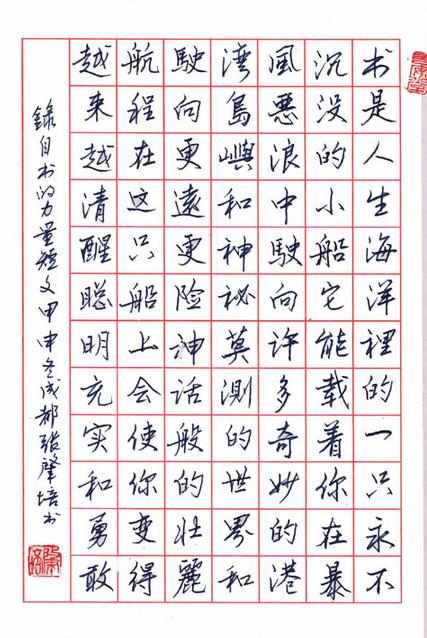 书是人生海洋裡的一只永不
沉没的小船它能载着你在暴
風恶浪中駛向许多奇妙的港
湾島嶼和神秘莫测的世界和
駛向更遠更险神话般的壮麗
航程在这只船上会使你变得
越来越清醒聪明充实和勇敢
錄自书的力量短文甲申冬成都張肇培书